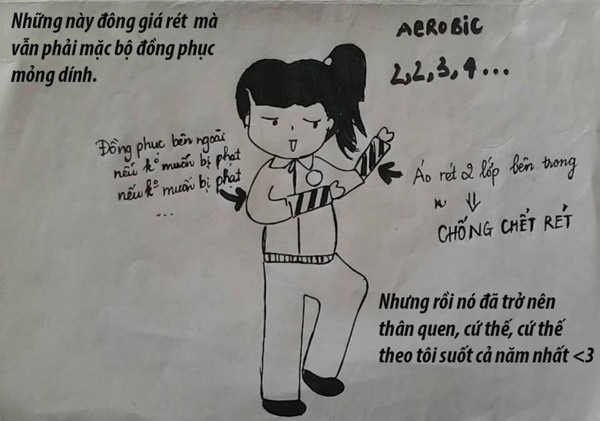 Những này đông giá rét mà
vẫn phải mặc bộ đồng phục
mỏng dính.
AEROBIC
2,2,3,4...
Đồng phục bên ngoài
nếu k° muốn bị phạt
nếu k° muốn bị phạt
...
Áo rét 2 lớp bên trong
⇓
CHỐNG CHẾT RÉT
Nhưng rồi nó đã trở nên
thân quen, cứ thế, cứ thế
theo tôi suốt cả năm nhất <3